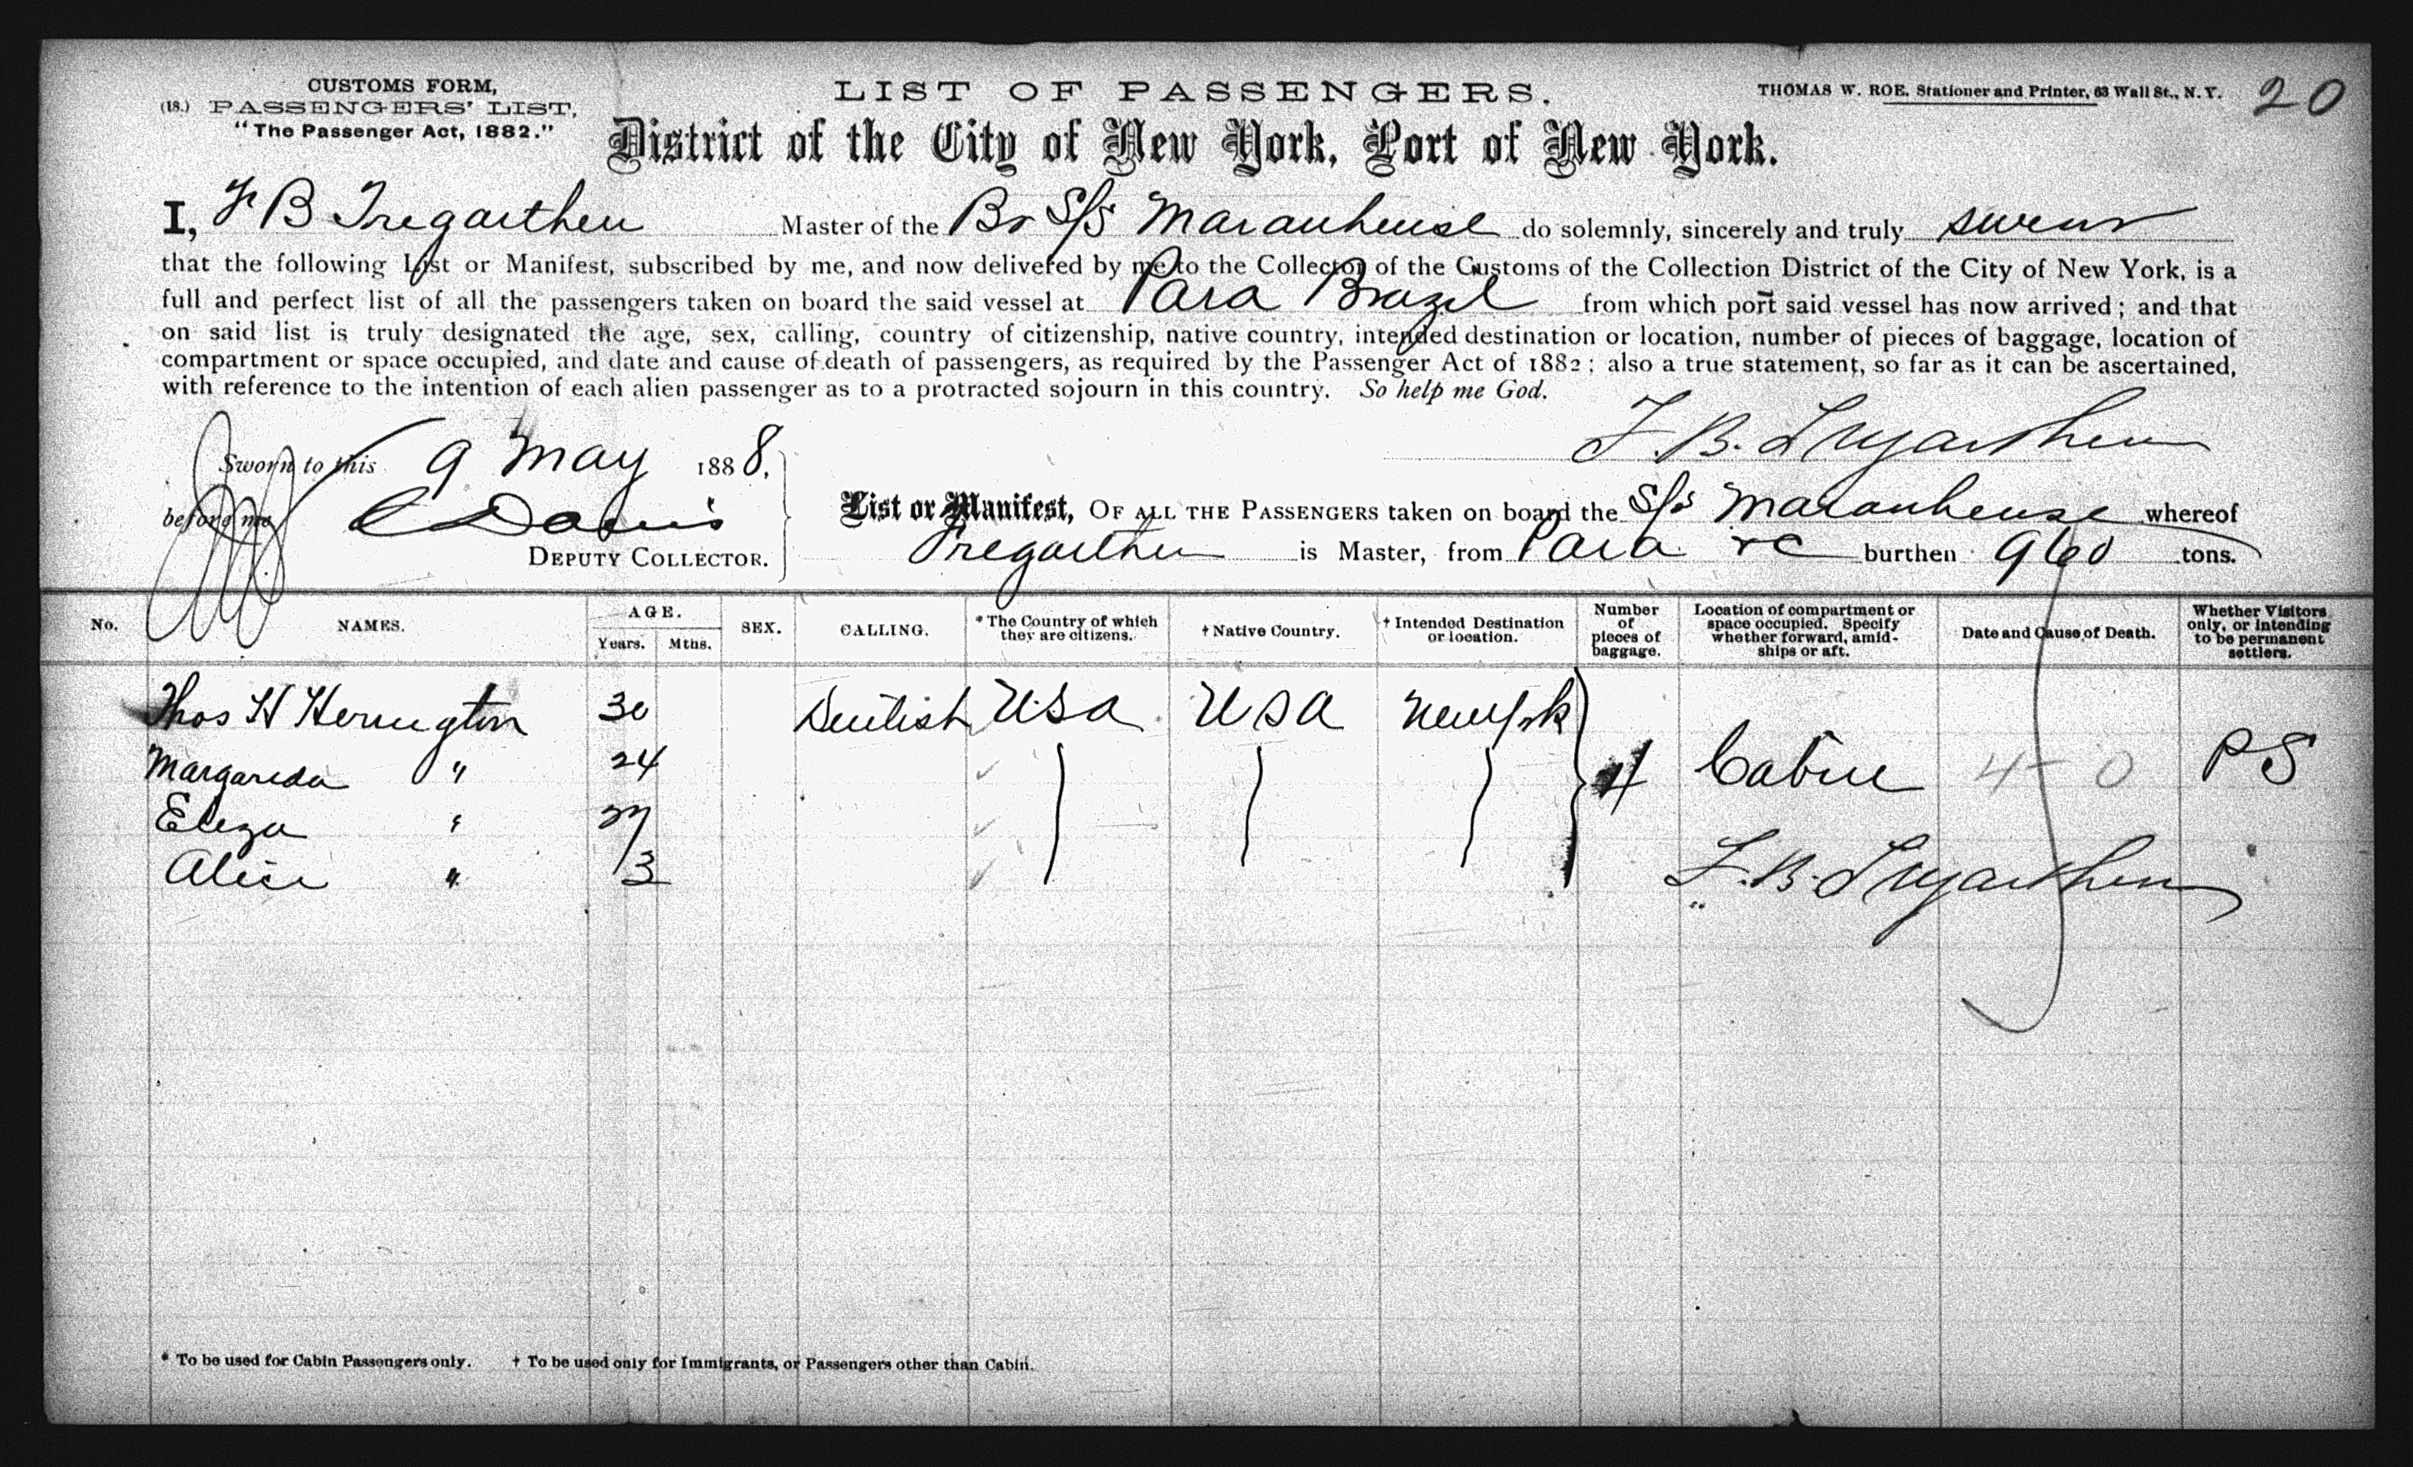 CUSTOMS FORM,
(18.) PASSENGERS' LIST,
"The Passenger Act, 1882."
LIST OF PASSENGERS.
THOMAS W. ROE, Stationer and Printer, 63 Wall St., N. Y.
20
District of the City of New York, Port of New York.
I, F B Tregarthen Master of the Br S/S Maranhense do solemnly, sincerely and truly swear
that the following List or Manifest, subscribed by me, and now delivered by me to the Collector of the Customs of the Collection District of the City of New York, is a
full and perfect list of all the passengers taken on board the said vessel at Para Brazil from which port said vessel has now arrived; and that
on said list is truly designated the age, sex, calling, country of citizenship, native country, intended destination or location, number of pieces of baggage, location of
compartment or space occupied, and date and cause of death of passengers, as required by the Passenger Act of 1882; also a true statement, so far as it can be ascertained,
with reference to the intention of each alien passenger as to a protracted sojourn in this country. So help me God.
F. B. Tregarthen
Sworn to this 9 May 1888.
before me C Davis
DEPUTY COLLECTOR.
List or Manifest, OF ALL THE PASSENGERS taken on board the S/s Maranhense whereof
Tregarthen is Master, from Para &c burthen 960 tons.
No. NAMES. AGE. Years. Mths. SEX. CALLING. * The Country of which they are citizens. † Native Country. † Intended Destination or location. Number of pieces of baggage. Location of compartment or space occupied. Specify whether forward, amidships or aft. Date and Cause of Death. Whether Visitors only, or intending to be permanent settlers.
Thos H Herrington 30 Dentist USA USA New York
Margareda " 24 4 Cabin 4-0 PS
Eliza " 
Alice " 3 F. B. Tregarthen
* To be used for Cabin Passengers only. † To be used only for Immigrants, or Passengers other than Cabin.